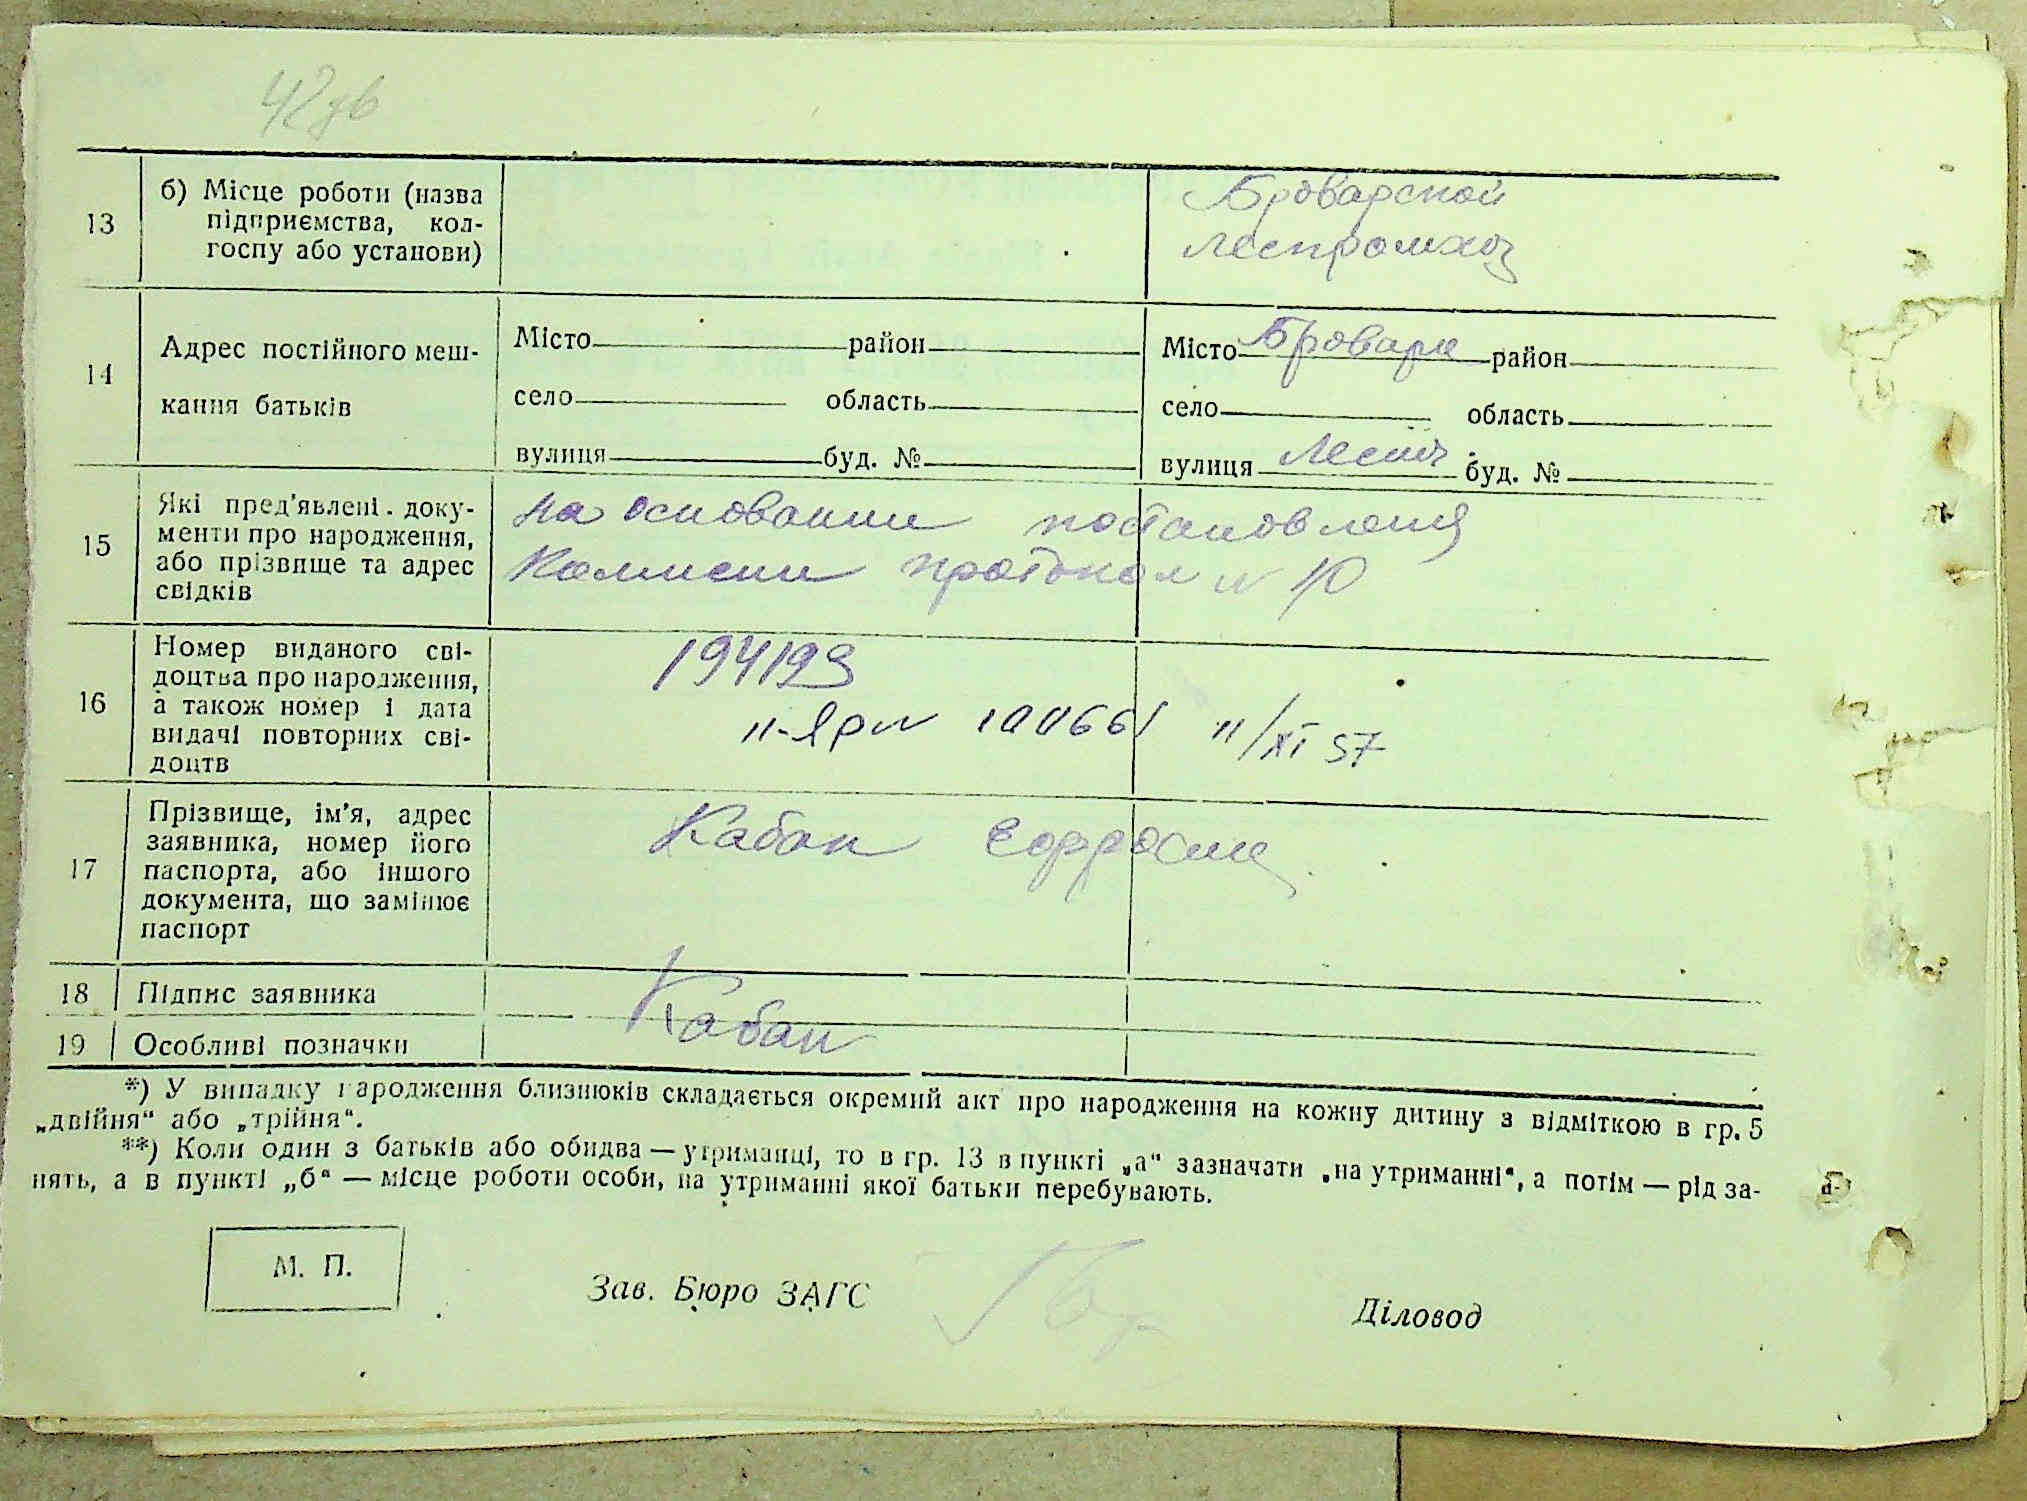 13
б) Місце роботи (назва
підприємства, кол-
госпу або установи)
Броварской
леспромхоз
14
Адрес постійного меш-
кання батьків
Місто район
село область
вулиця буд. №
Місто Бровари район
село область
вулиця Лесн. буд. №
15
Які пред'явлені документи про народження,
або прізвище та адрес
свідків
на основании постановления
Комисии протокол N 10
16
Номер виданого сві-
доцтва про народження,
а також номер і дата
видачі повторних сві-
доцтв
194193
11/XI 57
17
Прізвище, ім'я, адрес
заявника, номер його
паспорта, або іншого
документа, що замінює
паспорт
Кабан
18 Підпис заявника
Кабан
19 Особливі позначки
*) У випадку народження близнюків складається окремий акт про народження на кожну дитину з відміткою в гр. 5
„двійня“ або „трійня“.
**) Коли один з батьків або обидва — утриманці, то в гр. 13 в пункті „а“ зазначати „на утриманні“, а потім — рід за-
нять, а в пункті „б“ — місце роботи особи, на утриманні якої батьки перебувають.
М. П.
Зав. Бюро ЗАГС
Діловод